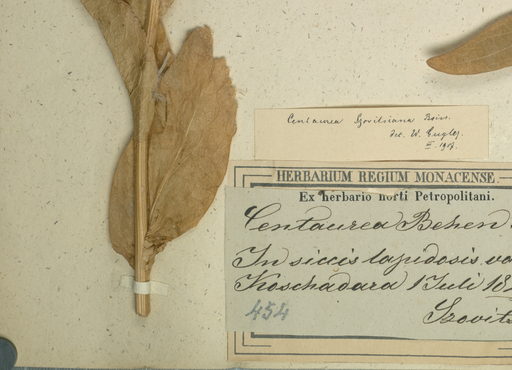 Centaurea Szovitsiana Boiss.
det. W. Gugler
II. 1907.
HERBARIUM REGIUM MONACENSE.
Ex herbario horti Petropolitani.
Centaurea Behen
In siccis lapidosis
Koschadara 1 Juli 18
454
Szovits